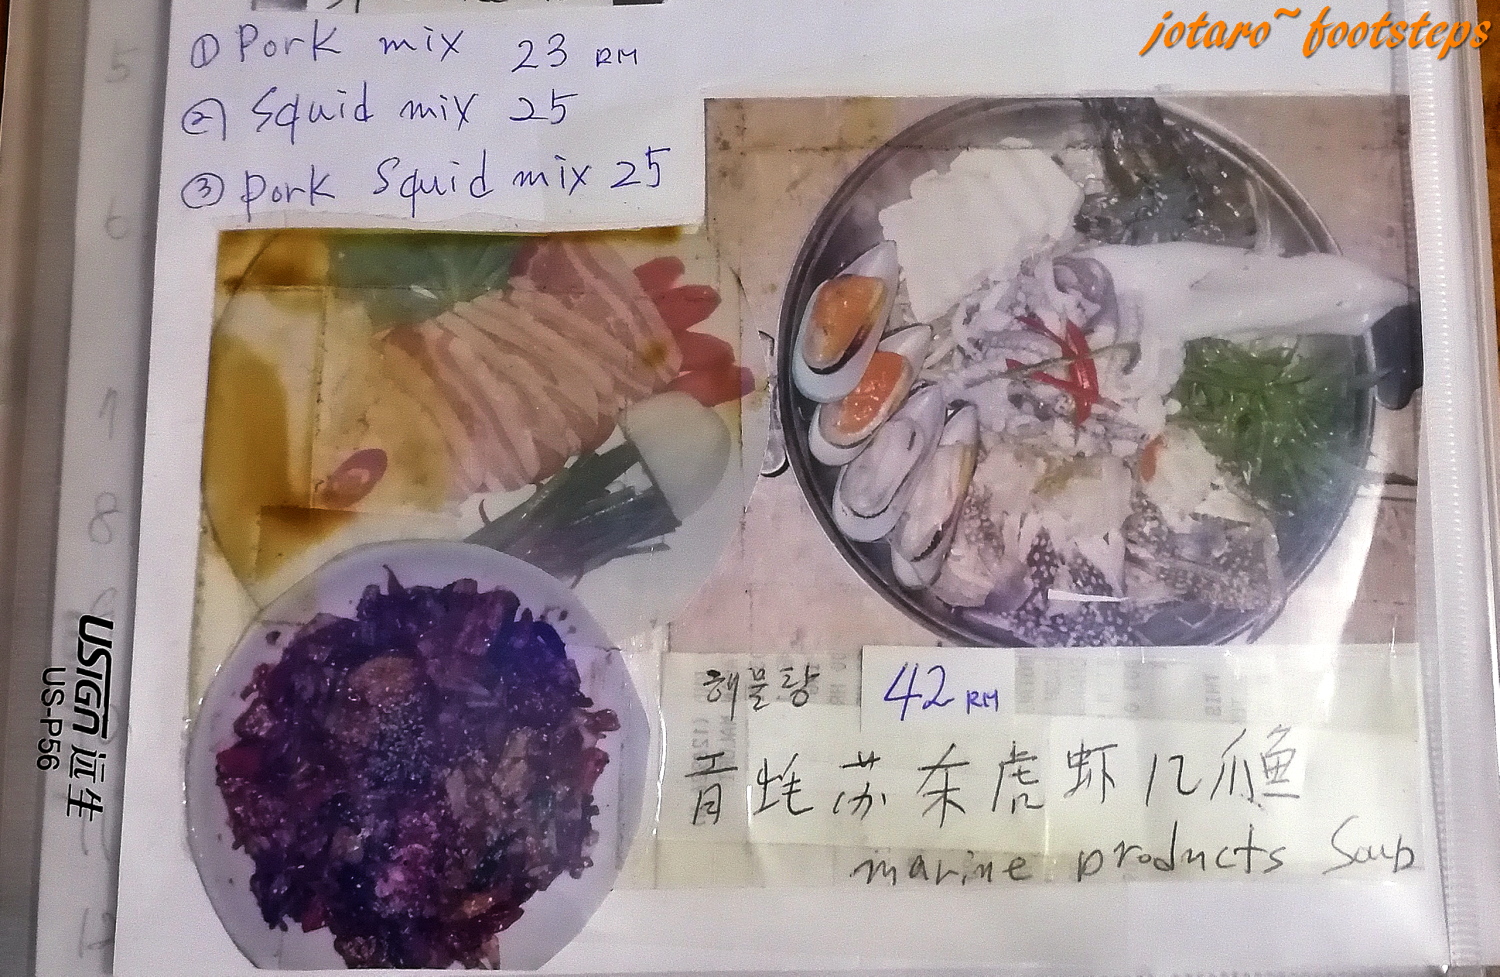 jotaro~footsteps
① Pork mix 23 RM
② Squid mix 25
③ pork Squid mix 25
5
6
7
8
USIGN 远生
US-P56
해물탕 42 RM
青 苏 东 虎 虾 几 爪 鱼
marine products Soup